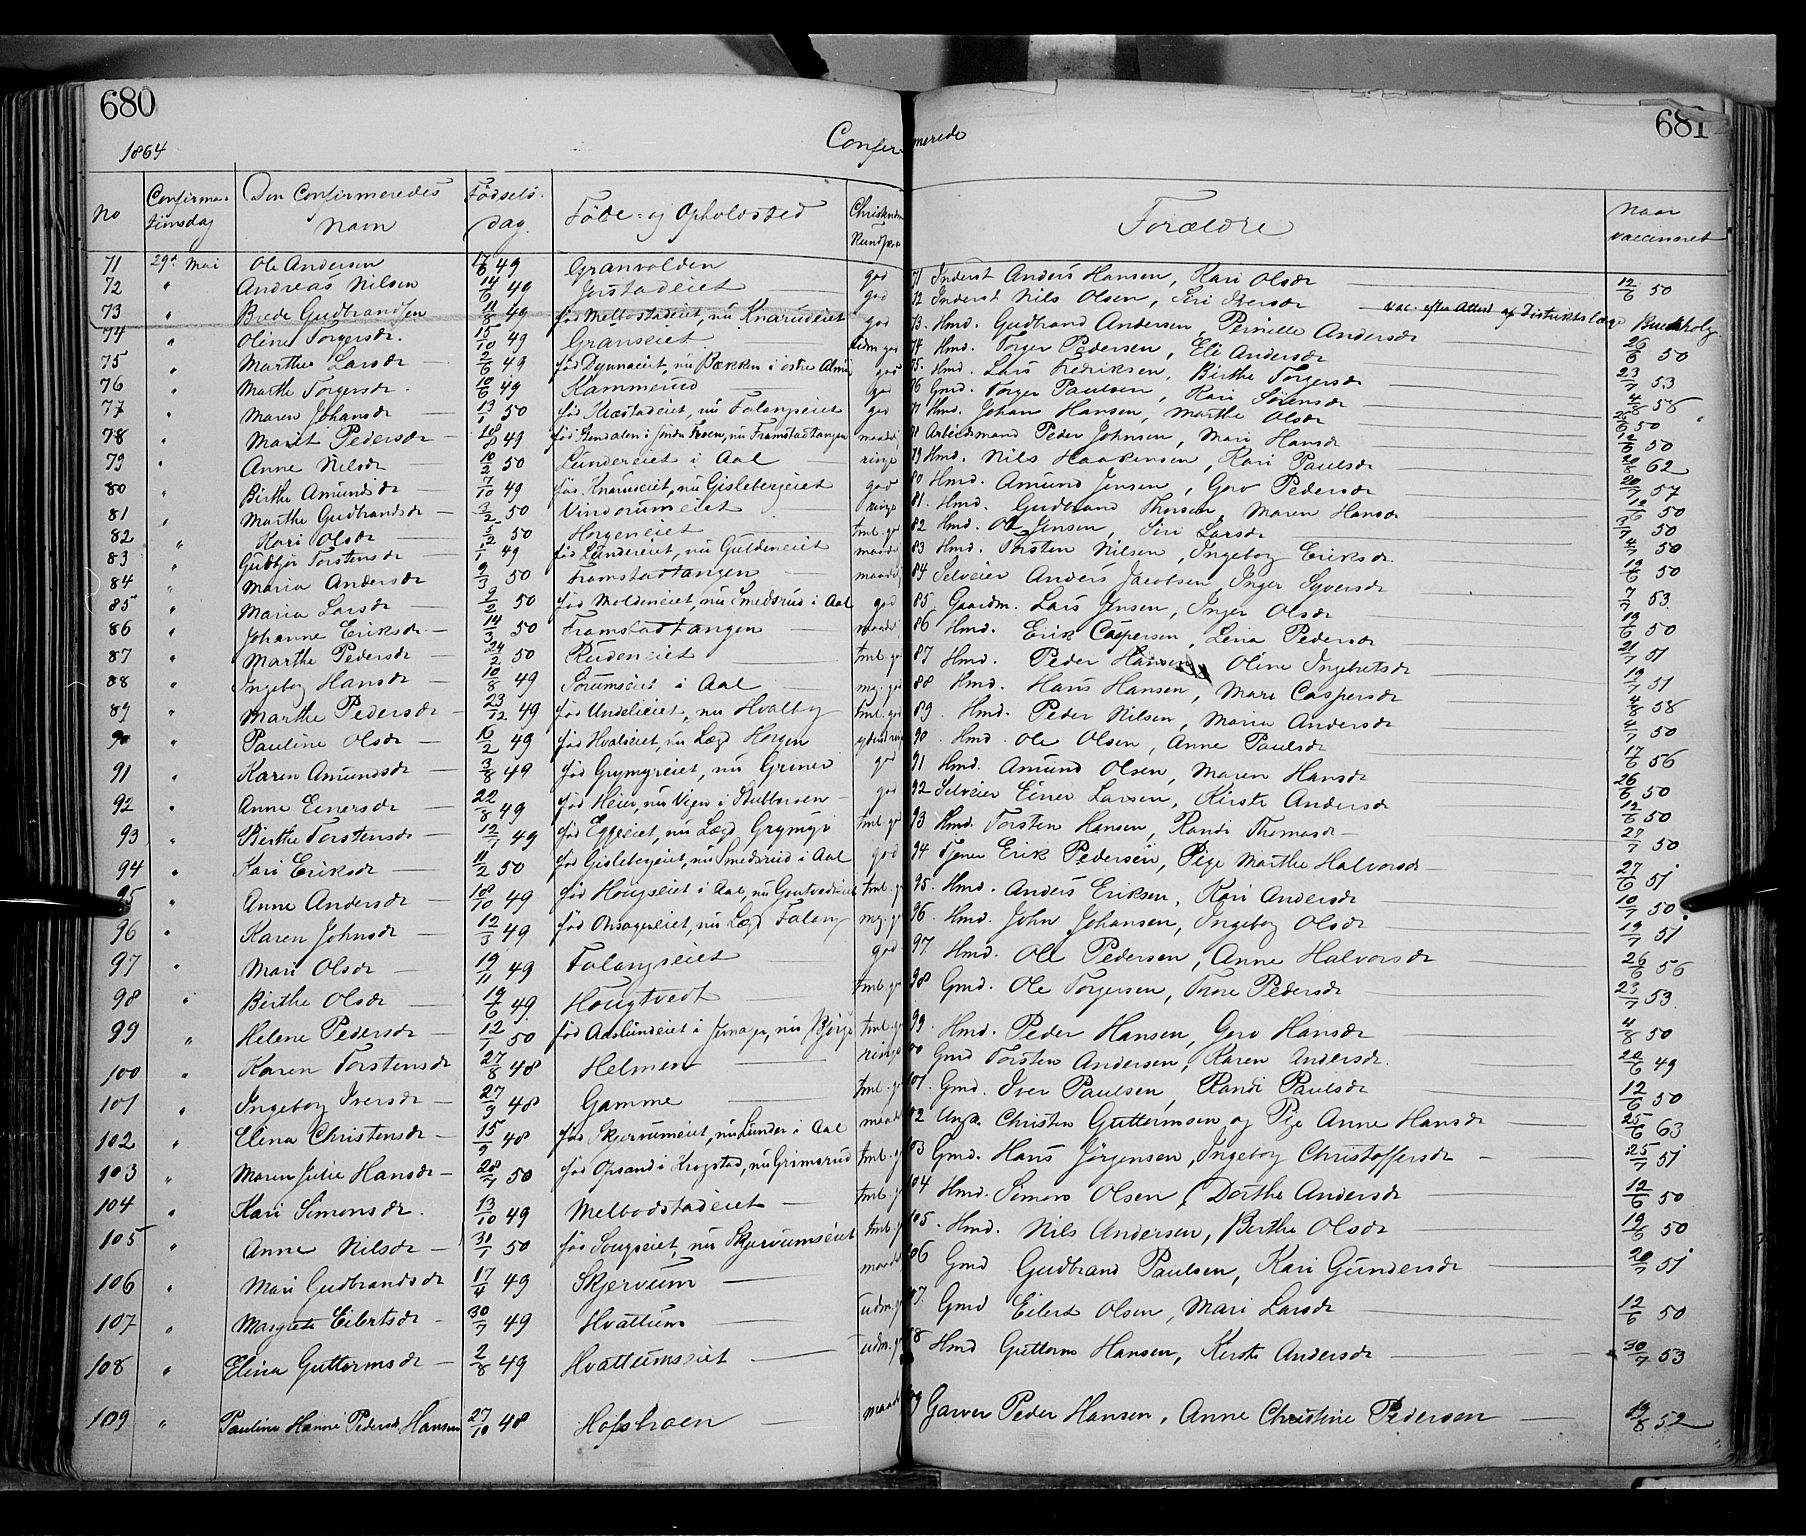 680
681
1864
Confirmerede
No Confirmationsdag Den Confirmeredes Navn Fødsels-dag Føde- og Opholdsted Christendoms Kundskab Forældre Naar vaccineret
71 29de Mai Ole Andersen 17/6 49 Granvolden god 71 Inderst Anders Hansen, Kari Olsdr 12/6 50
72 " Andreas Nilsen 14/6 49 Jerstadeiet god 72 Inderst Nils Olsen, Siri Iversdr vac. efter Attest af Distriktslæge Buchholz
73 " Brede Gudbrandsen 11/8 49 fød Melbostadeiet, nu Knarudeiet god 73. Hmd. Gudbrand Andersen, Pernille Andersdr 26/6 50
74 " Oline Torgersdr. 15/10 49 Granseiet 74 Hmd. Torger Pedersen, Eli Andersdr 23/7 53
75 " Marthe Larsdr 2/6 49 fød Dynnaeiet, nu Bækken i østre Almin god 75. Hmd. Lars Fredriksen, Birthe Torgersdr 4/8 58
76 " Marthe Torgersdr. 10/6 49 Kammerud god 76 Gmd. Torger Paulsen, Kari Sørensdr 50
77 " Maren Johansdr 13/1 50 fød Klæstadeiet, nu Falangseiet god 77 Hmd. Johan Hansen, Marthe Olsdr 50
78 " Marit Pedersdr 49 nu Framstadtangen maadel 78 Arbeidsmand Peder Johnsen, Mari Hansdr 62
79 " Anne Nilsdr 10/2 50 Lundereiet i Aal ringe 79 Hmd. Nils Haakensen, Kari Paulsdr 57
80 " Birthe Amundsdr 7/10 49 fød Knaruseiet, nu Gislebergeiet god 80 Hmd. Amund Jensen, Goro Pedersdr 50
81 " Marthe Gudbrandsdr 3/2 50 Vindorumeiet ringe 81. Hmd. Gudbrand Thorsen, Maren Hansdr 50
82 " Kari Olsdr 50 Horgeneiet tml. god 82 Hmd. Ole Jensen, Siri Larsdr 50
83 " Gubbjør Torstensdr 49 fød Lundereiet, nu Guldeneiet maadel 83 Hmd. Torsten Nilsen, Ingeborg Eriksdr 50
84 " Maria Andersdr 9/3 50 Framstadtangen maadel 84 Selveier Anders Jacobsen, Inger Syversdr 7/7 53.
85 " Maria Larsdr 9/2 50 fød Moldeneiet, nu Smedsrud i Aal god 85 Gaardm. Lars Jensen, Inger Olsdr 19/6 50
86 " Johanne Eriksdr. 14/3 50 Framstadtangen maadel 86 Hmd. Erik Caspersen, Lena Pedersdr 21/7 51
87 " Marthe Pedersdr 24/2 50 Rudeneiet tml. god 87 Hmd. Peder Hansen, Oline Ingebretsdr 19/7 51
88 " Ingeborg Hansdr 10/8 49 Sorumseiet i Aal mg. god 88 Hmd. Hans Hansen, Mari Caspersdr 4/8 58
89 " Marthe Pedersdr 23/12 49 fød Undelieiet, nu Hvalby tml. god 89. Hmd. Peder Nilsen, Maria Andersdr 4/7 50
90 " Pauline Olsdr 16/2 49 fød Hvalseiet, nu Lægd Horgen yderst ringe 90 Hmd. Ole Olsen, Anne Paulsdr 17/6 56
91 " Karen Amundsdr 3/8 49 fød Grymyreiet, nu Griner god 91 Hmd. Amund Olsen, Maren Hansdr 26/6 50
92 " Anne Einersdr 22/8 49 fød Heier, nu Vigen i god 92 Selveier Einer Larsen, Kirsti Andersdr 12/6 50
93 " Birthe Torstensdr 12/7 49 fød Eggeeiet, nu Lægd, Grymyr tml. god 93 Hmd. Torsten Hansen, Randi Thomasdr 27/7 50
94 " Kari Eriksdr 11/2 50 fød Gislebergeiet, nu Smedsrud i Aal god 94 Tjener Erik Pedersen, Pige Marthe Halvorsdr 27/6 51
95 " Anne Andersdr 18/10 49 fød Hougseiet i Aal, nu Gentvedteiet tml. g 95. Hmd. Anders Eriksen, Kari Andersdr 10/7 50
96 " Karen Johnsdr 12/3 49 fød nu Lægd Falang mg. g 96. Hmd. John Johansen, Ingeborg Olsdr 19/7 51
97 " Mari Olsdr 19/11 49 Falangseiet god 97 Hmd. Ole Pedersen, Anne Halvorsdr 26/6 56
98 " Birthe Olsdr 19/6 49. Hougtvedt tml. g 98 Gmd. Ole Torgersen, Tore Pedersdr 23/7 53.
99 " Helene Pedersdr 12/1 50 fød Aaslundeiet i Jevnager, nu Bjørge tml. g 99. Hmd. Peder Hansen, Goro Hansdr 4/8 50
100 " Karen Torstensdr 27/8 48 Helmen ringe 00 Gmd Torsten Andersen, Karen Andersdr. 20/6 49
101 " Ingeborg Iversdr 27/9 48 Gamme tml. g 101. Gmd. Iver Paulsen, Randi Paulsdr 12/6 50
102 " Elena Christensdr 15/9 48 fød Skjervumeiet, nu Lunder i Aal maadel 02 Ungk. Christen Guttormsen og Pige Anne Hansdr 25/6 63
103 " Maren Julie Hansdr 28/7 50 fød Opsand i Krogstad, nu Grimsrud tml. g 03 Gmd. Hans Jørgensen, Ingeborg Christoffersdr 25/7 51
104 " Kari Simonsdr. 13/10 49 Melbodstadeiet tml. g 04 Hmd. Simons Olsen, Dorthe Andersdr 12/6 50
105 " Anne Nilsdr 30/1 50 fød Sougseiet, nu Skjervumseiet tml. g 05. Hmd. Nils Andersen, Birthe Olsdr 19/6 50
106 " Mari Gudbrandsdr 17/4 49 Skjervum maadel 06 Gmd Gudbrand Paulsen, Kari Gundersdr 20/7 51
107 " Margrete Eilertsdr 30/7 49 Hvattum udm. g 07. Gmd Eilert Olsen, Mari Larsdr 12/6 50
108 " Elina Guttormsdr 2/8 49 Hvattumseiet udm. g 08 Hmd Guttorm Hansen, Kirsti Andersdr 30/7 53
109 " Pauline Hanne Pedersdr Hansen 27/10 48 Hofshroen maadel 09 Garver Peder Hansen, Anne Christine Pedersen 19/8 52